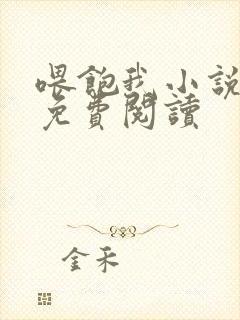 喂飽我小說
免費閱讀
金禾